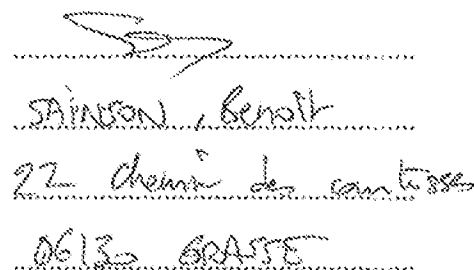 SAINSON, Benoît
22 chemin des comtesses
06130 GRASSE